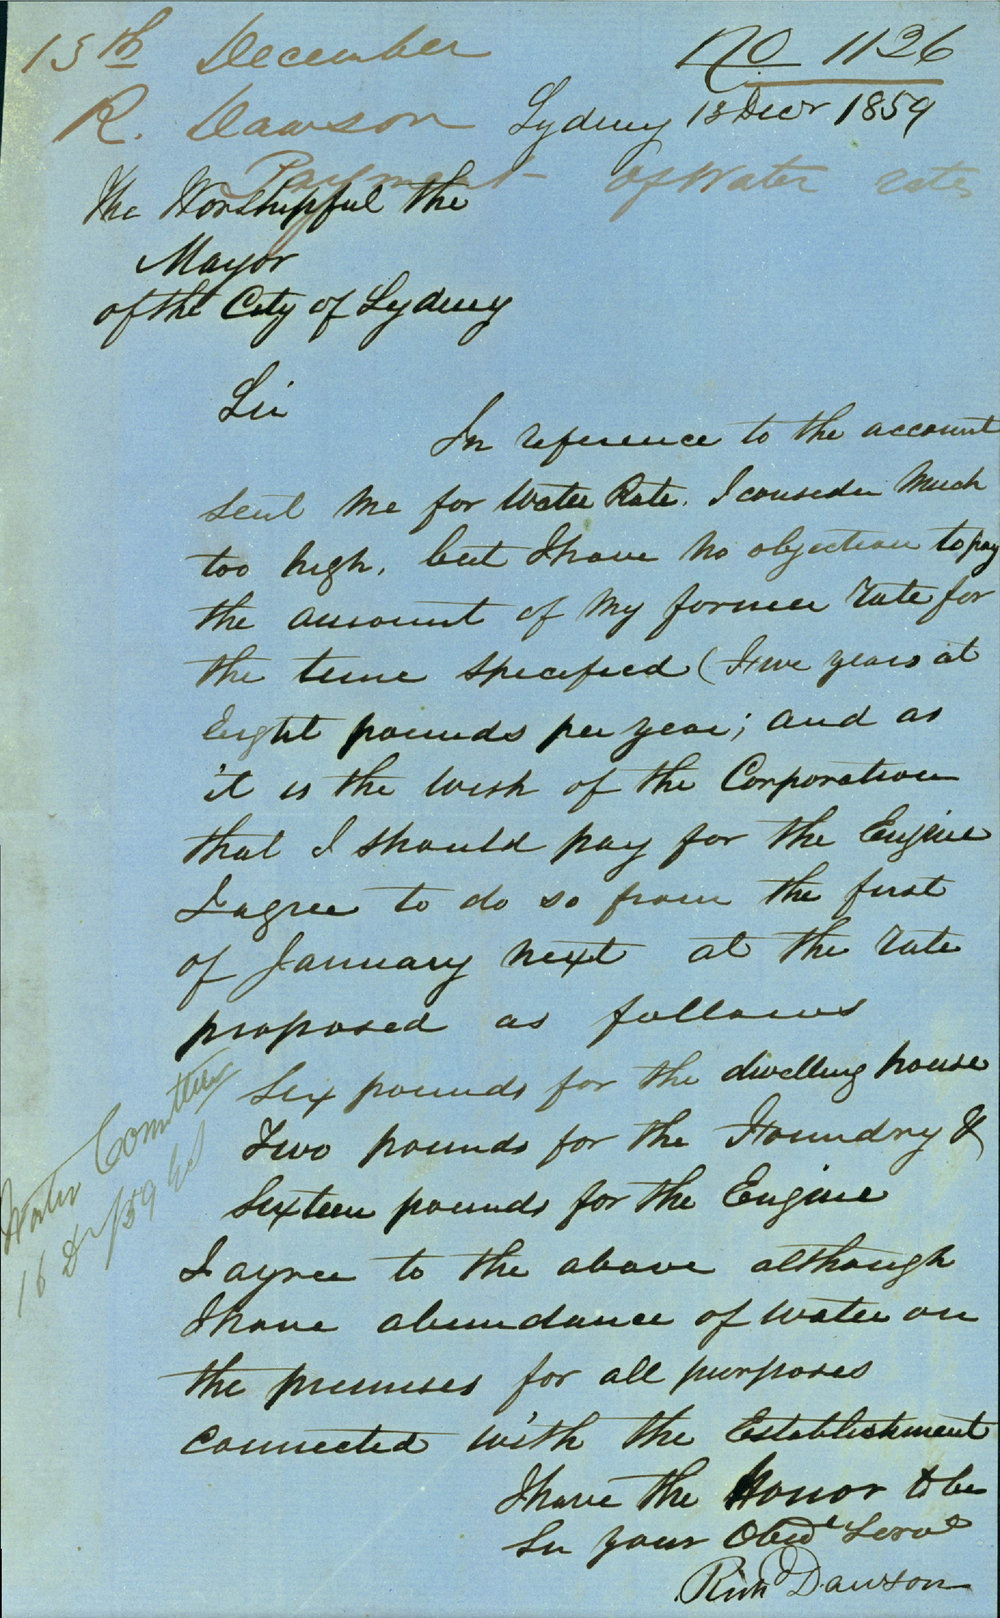 15th December
No 1126
R. Dawson
Sydney 13 Decr 1859
Payment of Water rates
The Worshipful the
Mayor
of the City of Sydney
Sir
In reference to the account
sent me for Water Rate. I consider Much
too high, but I have no objection to pay
the amount of my former rate for
the time specified (Five years at
Eight pounds per year; and as
it is the wish of the Corporation
that I should pay for the Engine
I agree to do so from the first
of January next at the rate
proposed as follows
Six pounds for the dwelling house
Two pounds for the Foundry &
Sixteen pounds for the Engine
I agree to the above although
I have abundance of water on
the premises for all purposes
connected with the Establishment
I have the Honor to be
Sir your Obed Servt
Richd Dawson
Water Committee
16 Dr/59